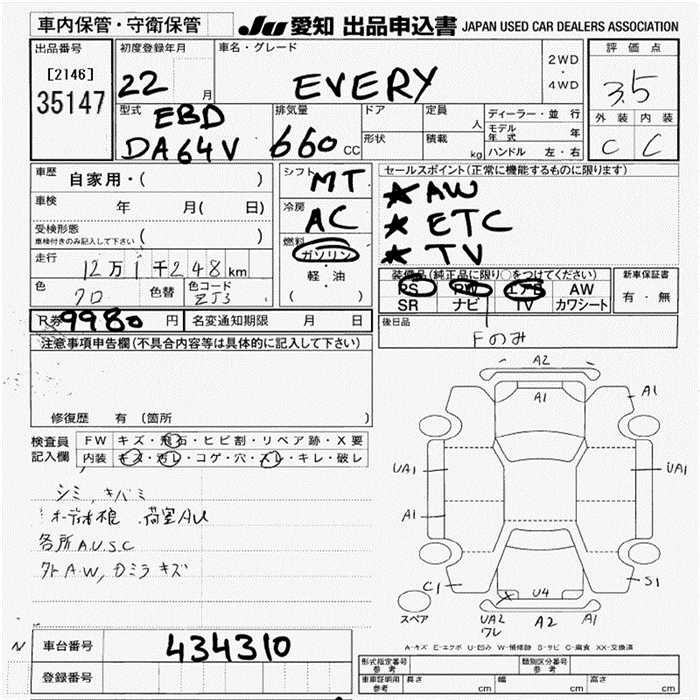 車内保管・守衛保管
JU 愛知 出品申込書 JAPAN USED CAR DEALERS ASSOCIATION
出品番号
[2146]
35147
初度登録年月
22 月
車名・グレード
EVERY
2WD
・
4WD
評価点
3.5
外装 内装
C C
型式
EBD
DA64V
排気量
660 CC
ドア
形状
定員
人
積載
kg
ディーラー・並行
モデル年式 年
ハンドル 左・右
車歴 自家用・( )
車検 年 月( 日)
受検形態
車検付きのみ記入して下さい ( )
走行 12万1千248km
色 色替 色コード
ZJ3
シフト MT
冷房 AC
燃料
ガソリン
・
軽・油
( )
セールスポイント(正常に機能するものに限ります)
★AW
★ETC
★TV
装備品(純正品に限り○をつけてください)
PS PW エアB AW
SR ナビ TV カワシート
新車保証書
有・無
後日品
Fのみ
R券 9980 円 名変通知期限 月 日
注意事項申告欄(不具合内容等は具体的に記入して下さい)
修復歴 有 (箇所
検査員
記入欄
FW キズ・飛石・ヒビ割・リペア跡・X要
内装 キズ・汚レ・コゲ・穴・スレ・キレ・破レ
シミ,キバミ
オーディオ損 荷室AU
各所A.U.S.C
外A.W,カミラキズ
A2
A1
A1
UA1
UA1
A1
C1
S1
U4
スペア
UA2
ワレ
A2
A1
A-キズ E-エクボ U-凹み W-補修跡 S-サビ C-腐食 XX-交換済
N
車台番号 434310
登録番号
形式指定番号
参考
類別区分番号
参考
車車証明用
参考
長さ cm 幅 cm 高さ cm